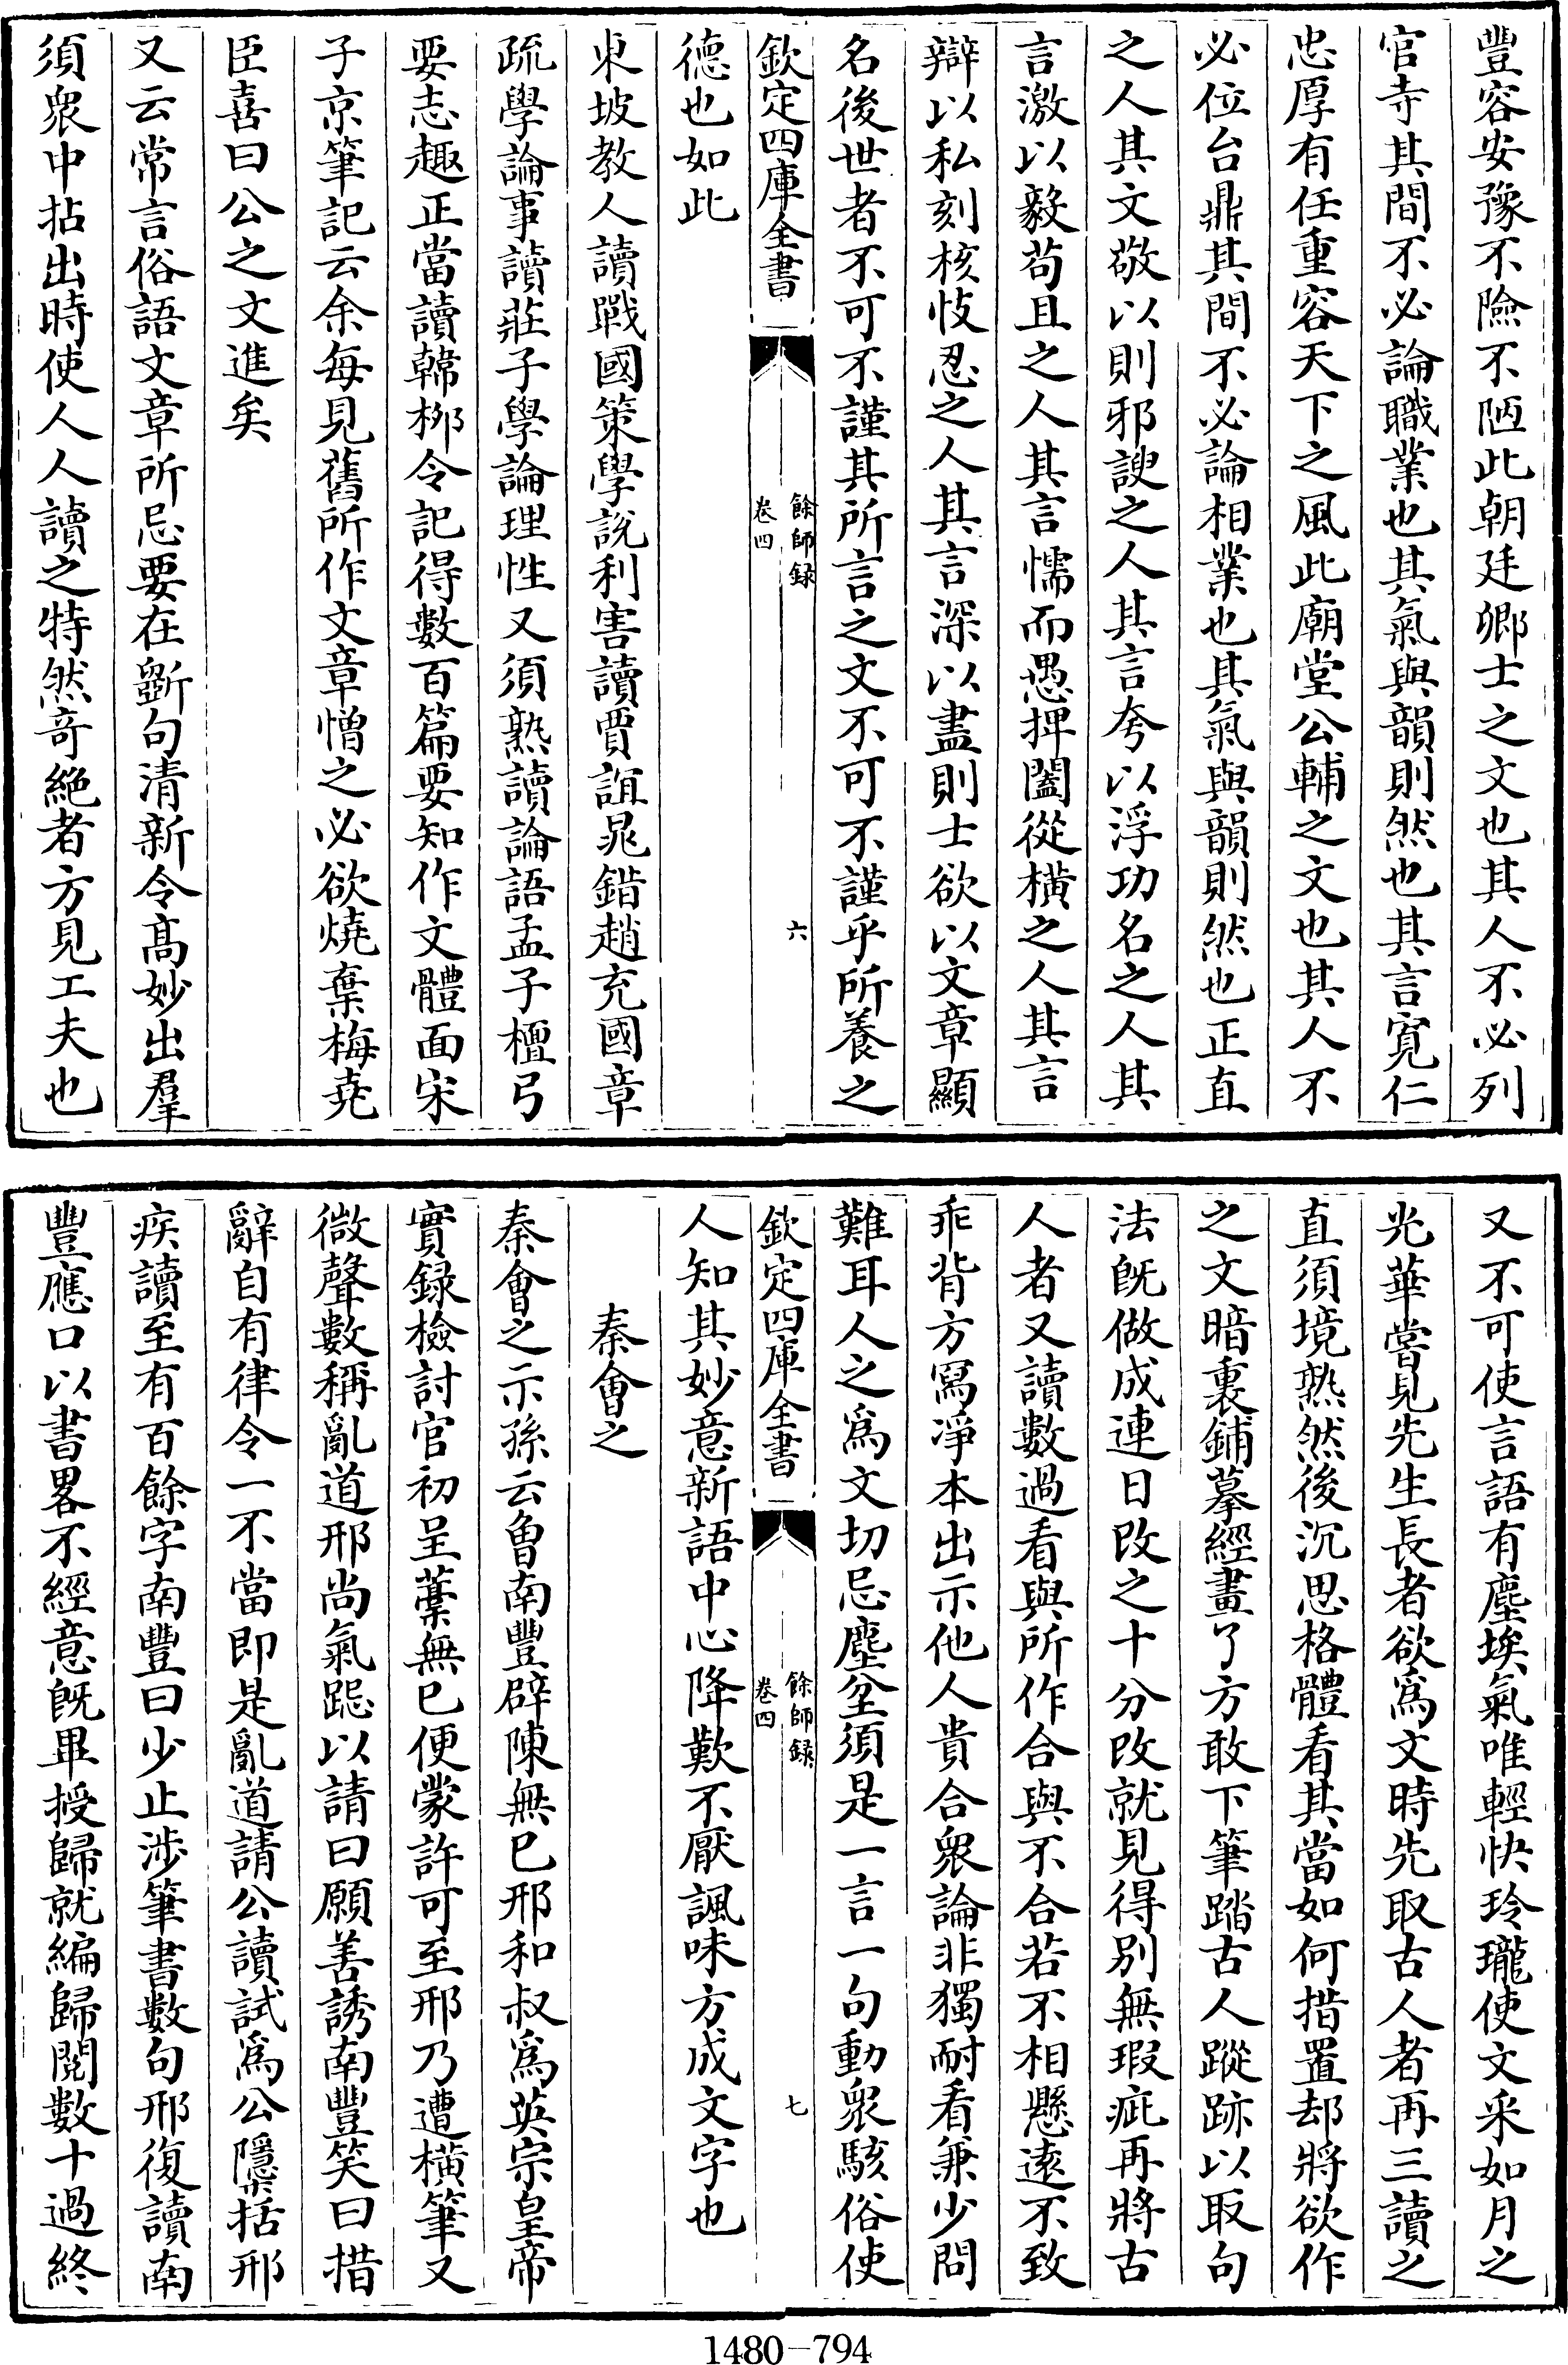 豐容安豫不險不陋此朝廷卿士之文也其人不必列
官寺其間不必論職業也其氣與韻則然也其言寛仁
忠厚有任重容天下之風此廟堂公輔之文也其人不
必位台鼎其間不必論相業也其氣與韻則然也正直
之人其文敬以則邪諛之人其言夸以浮功名之人其
言激以毅苟且之人其言懦而愚捭闔從横之人其言
辯以私刻核忮忍之人其言深以盡則士欲以文章顯
名後世者不可不謹其所言之文不可不謹乎所養之
欽定四庫全書
餘師録
卷四
六
德也如此
東坡教人讀戰國策學説利害讀賈誼鼂錯趙充國章
疏學論事讀莊子學論理性又須熟讀論語孟子檀弓
要志趣正當讀韓柳令記得數百篇要知作文體面宋
子京筆記云余每見舊所作文章憎之必欲燒棄梅堯
臣喜曰公之文進矣
又云常言俗語文章所忌要在斵句清新令髙妙出羣
須衆中拈出時使人人讀之特然奇絶者方見工夫也
又不可使言語有塵埃氣唯輕快玲瓏使文采如月之
光華嘗見先生長者欲為文時先取古人者再三讀之
直須境熟然後沉思格體看其當如何措置却將欲作
之文暗裏鋪摹經畫了方敢下筆踏古人蹤跡以取句
法既做成連日改之十分改就見得别無瑕疵再將古
人者又讀數過看與所作合與不合若不相懸逺不致
乖背方寫淨本出示他人貴合衆論非獨耐看兼少問
難耳人之為文切忌塵坌須是一言一句動衆駭俗使
欽定四庫全書
餘師録
卷四
七
人知其妙意新語中心降歎不厭諷味方成文字也
秦會之
秦會之示孫云魯南豐辟陳無已邢和叔為英宗皇帝
實録檢討官初呈藁無已便蒙許可至邢乃遭横筆又
微聲數稱亂道邢尚氣跽以請曰願善誘南豐笑曰措
辭自有律令一不當即是亂道請公讀試為公隱括邢
疾讀至有百餘字南豐曰少止渉筆書數句邢復讀南
豐應口以書畧不經意既畢授歸就編歸閲數十過終
1480-794